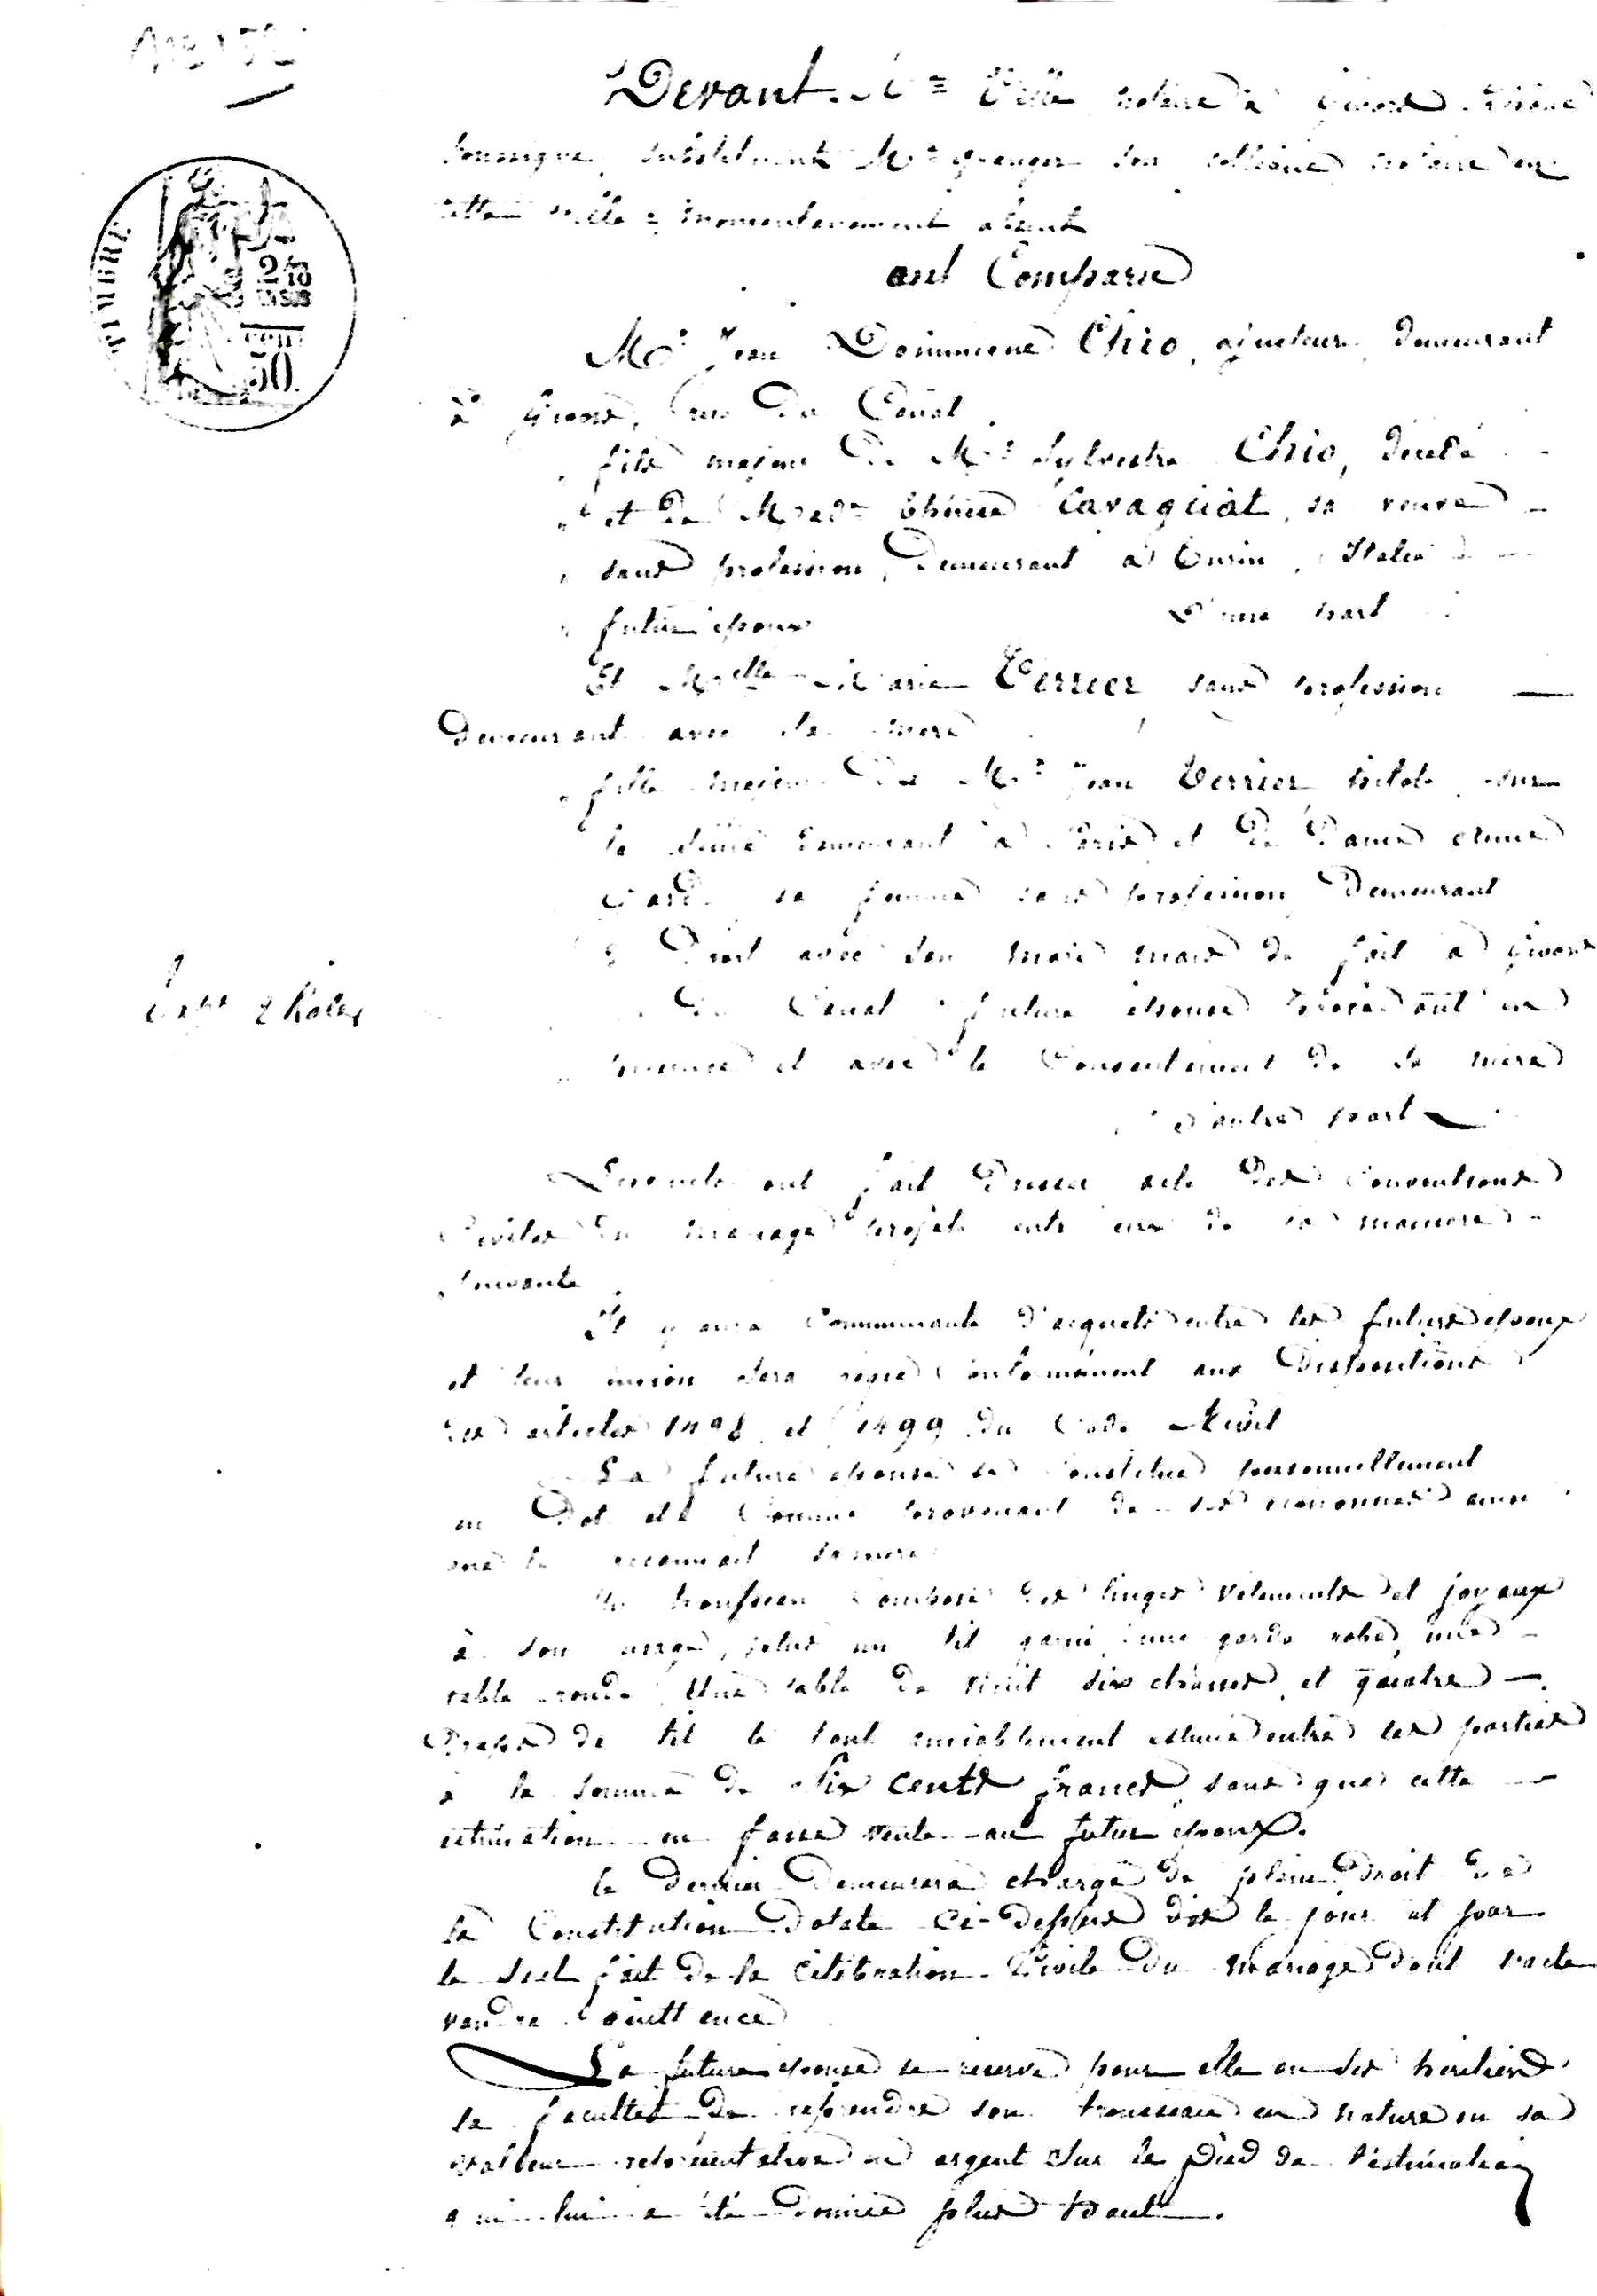 TIMBRE
2/10
EN SUS
50
Devant Me notaire à Givors Rhône
soussigné, substituant Me Granger son collègue notaire en
cette ville momentanément absent
ont Comparu
Mr Jean Dominique Chio, ajusteur, demeurant
à Givors, rue du Canal
fils majeur de Mr Sylvestre Chio, décédé
et de Made Thérèse Cavagliat, sa veuve
sans profession, demeurant à Turin, Italie
futur époux D'une part
Et Melle Marie Verrier sans profession
Demeurant avec sa mère
fille majeure de Mr Jean Verrier, pilote sur
la Seine demeurant à Paris et de Dame
sa femme sans profession, demeurant
de Droit avec son mari mais de fait à Givors
du Canal future épouse procédant en
présence et avec le Consentement de sa mère
d'autre part
Lesquels ont fait dresser acte des Conventions
Civiles du mariage projeté entre eux de la manière
suivante
Il y aura Communauté d'acquets entre les futurs époux
et leur union sera régie conformément aux Dispositions
des articles 1498 et 1499 du Code Civil
La future épouse se constitue personnellement
en Dot et comme provenant de ses économies ainsi
que le reconnait sa mère
Un trousseau composé des linges vêtements et joyaux
à son usage, plus un lit garni, une garde robe, une
table ronde, Une table de nuit six chaises et quatre
draps de lit le tout amiablement estimé entre les parties
à la somme de Six cents francs, sans que cette
estimation en fasse vente au futur époux.
Ce dernier Demeurera chargé de plein Droit de
la Constitution Dotale Ci-dessus dès le jour et par
le seul fait de la Célébration Civile du mariage dont l'acte
vaudra quittance
La future épouse se réserve pour elle ou ses héritiers
la faculté de reprendre son trousseau en nature ou sa
valleur représentative en argent sur le pied de l'estimation
qui lui a été Donnée plus haut.